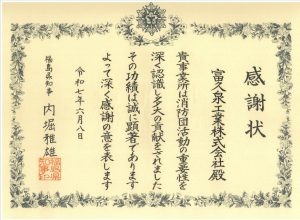 感謝状
富久泉工業株式会社殿
貴事業所は消防団活動の重要性を
深く認識し多大の貢献をされました
その功績は誠に顕著であります
よって深く感謝の意を表します
令和七年六月八日
福島県知事
内堀雅雄